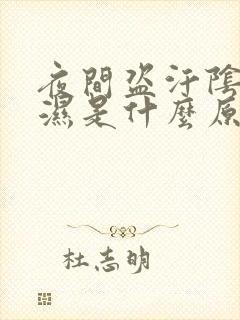 夜間盗汗陰
濕是什麼原
杜志明